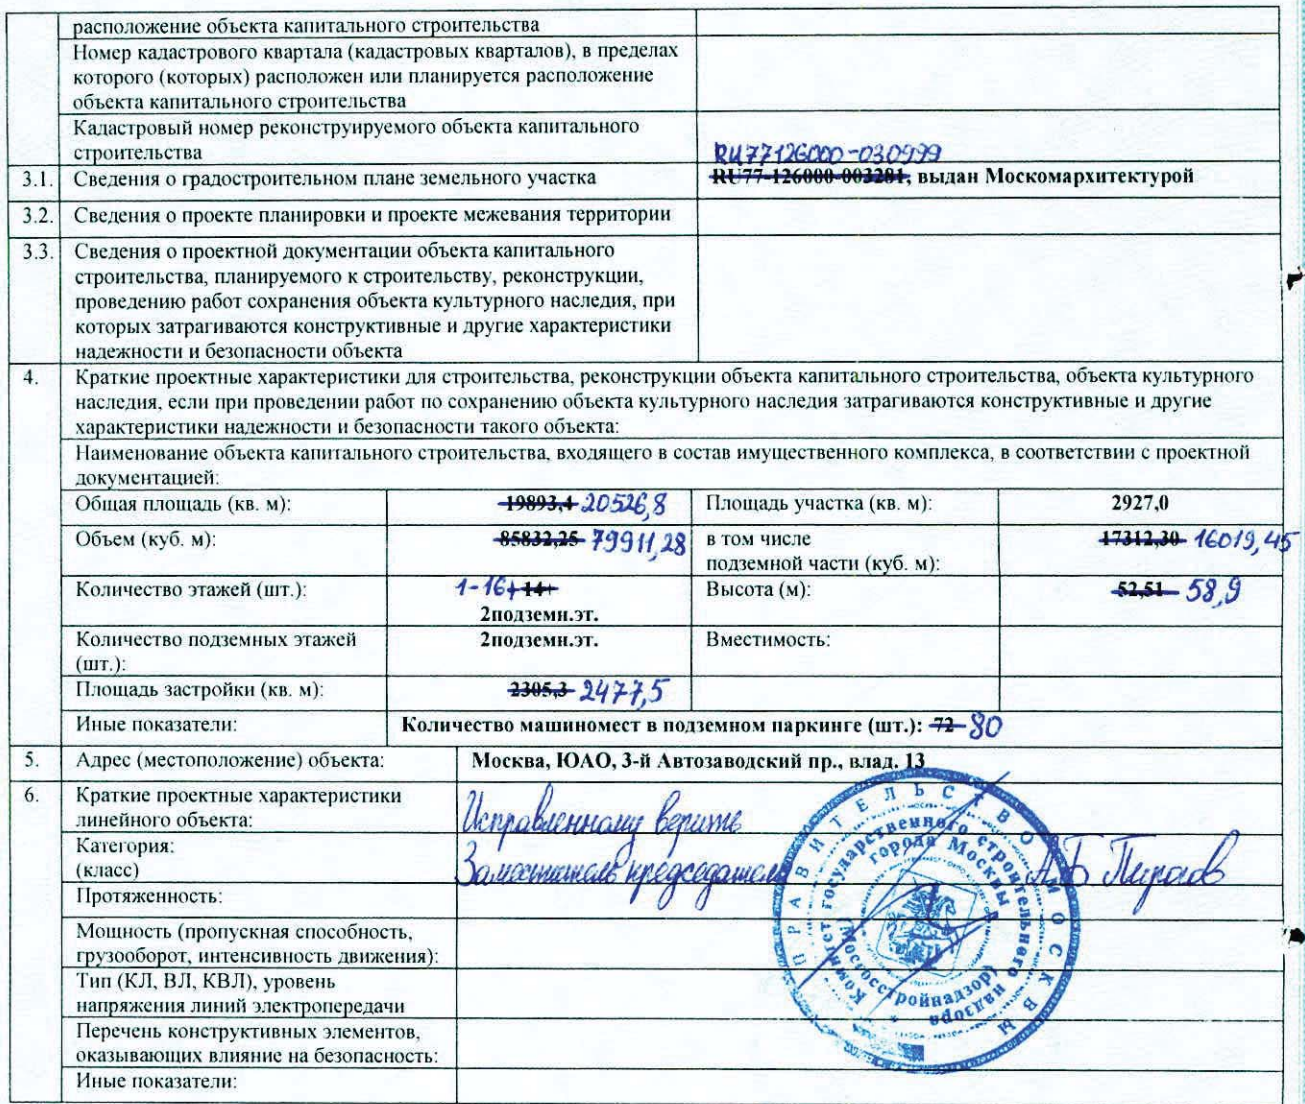 расположение объекта капитального строительства
Номер кадастрового квартала (кадастровых кварталов), в пределах
которого (которых) расположен или планируется расположение
объекта капитального строительства
Кадастровый номер реконструируемого объекта капитального
строительства
RU77126000-030999
3.1. Сведения о градостроительном плане земельного участка RU77-126000-003281, выдан Москомархитектурой
3.2. Сведения о проекте планировки и проекте межевания территории
3.3. Сведения о проектной документации объекта капитального
строительства, планируемого к строительству, реконструкции,
проведению работ сохранения объекта культурного наследия, при
которых затрагиваются конструктивные и другие характеристики
надежности и безопасности объекта
4. Краткие проектные характеристики для строительства, реконструкции объекта капитального строительства, объекта культурного
наследия, если при проведении работ по сохранению объекта культурного наследия затрагиваются конструктивные и другие
характеристики надежности и безопасности такого объекта:
Наименование объекта капитального строительства, входящего в состав имущественного комплекса, в соответствии с проектной
документацией:
Общая площадь (кв. м): 19893,4 20526,8 Площадь участка (кв. м): 2927,0
Объем (куб. м): 85832,25 79911,28 в том числе
подземной части (куб. м): 17312,30 16019,45
Количество этажей (шт.): 1-16+ 14+
2подземн.эт.
Высота (м): 52,51 58,9
Количество подземных этажей
(шт.): 2подземн.эт. Вместимость:
Площадь застройки (кв. м): 2305,3 2477,5
Иные показатели: Количество машиномест в подземном паркинге (шт.): 72 80
5. Адрес (местоположение) объекта: Москва, ЮАО, 3-й Автозаводский пр., влад. 13
6. Краткие проектные характеристики
линейного объекта:
Исправленному верить
Категория:
(класс)
Заместитель председателя А.Б. Пирогов
Протяженность:
Мощность (пропускная способность,
грузооборот, интенсивность движения):
Тип (КЛ, ВЛ, КВЛ), уровень
напряжения линий электропередачи
Перечень конструктивных элементов,
оказывающих влияние на безопасность:
Иные показатели:
ПРАВИТЕЛЬСТВО МОСКВЫ
Комитет государственного строительного надзора
города Москвы
(Мосгосстройнадзор)